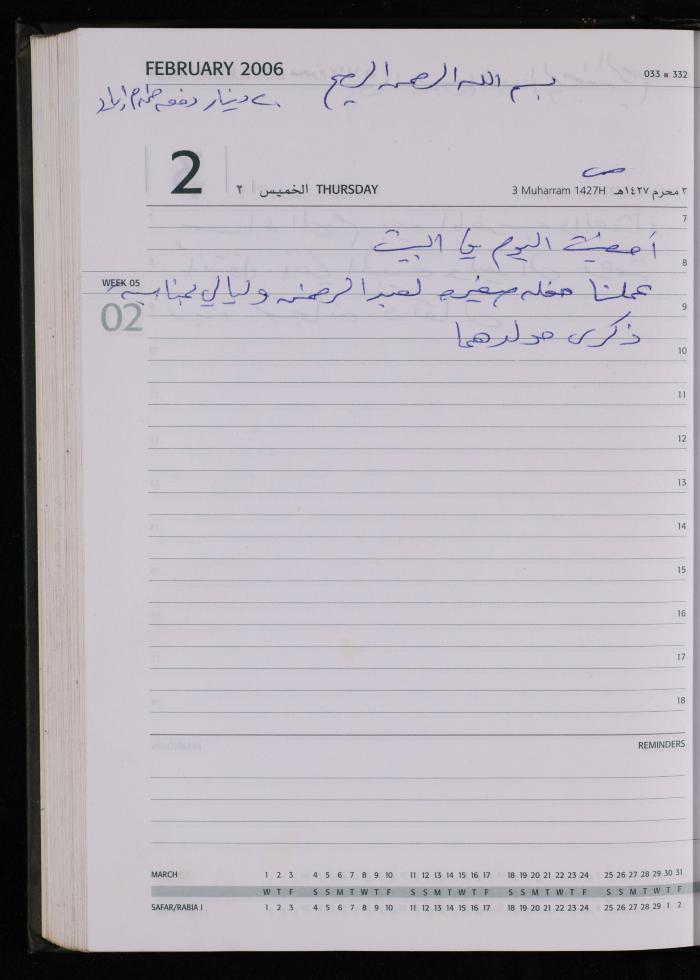 FEBRUARY 2006
بسم الله الرحمن الرحيم
033 ■ 332
٢٠ دينار دفعه
2
٢ الخميس THURSDAY
3 Muharram 1427H ٣ محرم ١٤٢٧هـ
7
أمضيت اليوم في البيت
8
WEEK 05
عملنا حفله صغيره لعبد الرحمن وليالي بمناسبة
02
9
ذكرى مولدهما
10
11
12
13
14
15
16
17
18
REMINDERS
MARCH 1 2 3 4 5 6 7 8 9 10 11 12 13 14 15 16 17 18 19 20 21 22 23 24 25 26 27 28 29 30 31
W T F S S M T W T F S S M T W T F S S M T W T F S S M T W T F
SAFAR/RABIA I 1 2 3 4 5 6 7 8 9 10 11 12 13 14 15 16 17 18 19 20 21 22 23 24 25 26 27 28 29 1 2